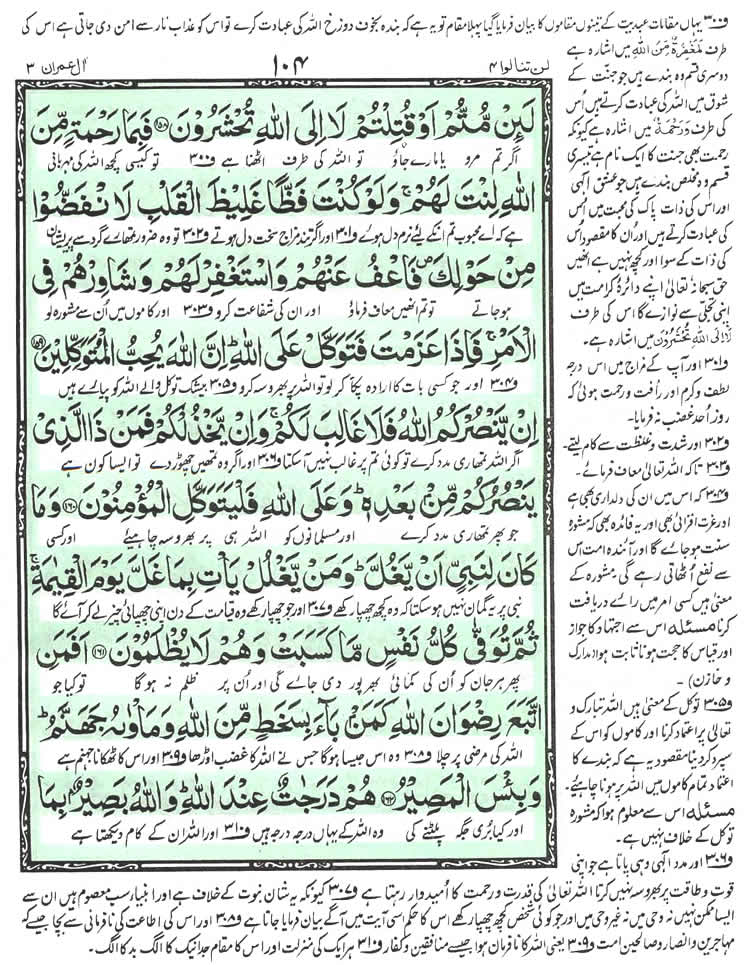 و۳۰۰ یہاں مقامات عبدیت کے تینوں مقاموں کا بیان فرمایا گیا پہلا مقام تو یہ ہے کہ بندہ بخوف دوزخ اللہ کی عبادت کرے تو اس کو عذاب نار سے امن دی جاتی ہے اس کی
طرف مَغْفِرَةٌ مِّنَ اللّٰهِ میں اشارہ ہے
دوسری قسم وہ بندے ہیں جو جنّت کے
شوق میں اللہ کی عبادت کرتے ہیں اُس
کی طرف وَرَحْمَةٌ میں اشارہ ہے کیونکہ
رحمت بھی جنّت کا ایک نام ہے تیسری
قسم وہ مخلص بندے ہیں جو عشق الٰہی
اور اس کی ذات پاک کی محبت میں اُس
کی عبادت کرتے ہیں اور اُن کا مقصود اُس
کی ذات کے سوا اور کچھ نہیں ہے انھیں
حق سبحانہٗ تعالیٰ اپنے دائرۂ کرامت میں
اپنی تجلّی سے نوازے گا اس کی طرف
لَاِالَی اللّٰهِ تُحْشَرُوْنَ میں اشارہ ہے۔
و۳۰۱ اور آپ کے مزاج میں اس درجہ
لطف و کرم اور رأفت و رحمت ہوئی کہ
روز اُحد غضب نہ فرمایا۔
و۳۰۲ اور شدت و غلظت سے کام لیتے۔
و۳۰۳ تاکہ اللہ تعالیٰ معاف فرمائے۔
و۳۰۴ کہ اس میں ان کی دلداری بھی ہے
اور عزت افزائی بھی اور یہ فائدہ بھی کہ مشورہ
سنت ہو جائے گا اور آئندہ امت اس
سے نفع اُٹھاتی رہے گی مشورہ کے
معنی ہیں کسی امر میں رائے دریافت
کرنا مسئلہ اس سے اجتہاد کا جواز
اور قیاس کا حجت ہونا ثابت ہوا (مدارک
و خازن)۔
و۳۰۵ توکل کے معنی ہیں اللہ تبارک و
تعالیٰ پر اعتماد کرنا اور کاموں کو اس کے
سپرد کر دینا مقصود یہ ہے کہ بندے کا
اعتماد تمام کاموں میں اللہ پر ہونا چاہیئے۔
مسئلہ اس سے معلوم ہوا کہ مشورہ
توکل کے خلاف نہیں ہے۔
و۳۰۶ اور مدد الٰہی وہی پاتا ہے جو اپنی
لن تنالوا ۴
۱۰۴
اٰل عمرٰن ۳
لَئِنْ مُّتُّمْ اَوْ قُتِلْتُمْ لَاۡاِلَی اللّٰهِ تُحْشَرُوْنَ ۝۱۵۸ فَبِمَا رَحْمَةٍ مِّنَ
اگر تم مرو یا مارے جاؤ تو اللہ کی طرف اٹھنا ہے و۳۰۰ تو کیسی کچھ اللہ کی مہربانی
اللّٰهِ لِنْتَ لَهُمْ ۚ وَلَوْ كُنْتَ فَظًّا غَلِیْظَ الْقَلْبِ لَانْفَضُّوْا
ہے کہ اے محبوب تم انکے لیے نرم دل ہوئے و۳۰۱ اور اگر تند مزاج سخت دل ہوتے و۳۰۲ تو وہ ضرور تمھارے گرد سے پریشان
مِنْ حَوْلِكَ ۪ فَاعْفُ عَنْهُمْ وَاسْتَغْفِرْ لَهُمْ وَشَاوِرْهُمْ فِی
ہو جاتے تو تم انھیں معاف فرماؤ اور ان کی شفاعت کرو و۳۰۳ اور کاموں میں اُن سے مشورہ لو
الْاَمْرِ ۚ فَاِذَا عَزَمْتَ فَتَوَكَّلْ عَلَی اللّٰهِ ؕ اِنَّ اللّٰهَ یُحِبُّ الْمُتَوَكِّلِیْنَ ۝۱۵۹
و۳۰۴ اور جو کسی بات کا ارادہ پکا کر لو تو اللہ پر بھروسہ کرو و۳۰۵ بیشک توکل والے اللہ کو پیارے ہیں
اِنْ یَّنْصُرْكُمُ اللّٰهُ فَلَا غَالِبَ لَكُمْ ۚ وَاِنْ یَّخْذُلْكُمْ فَمَنْ ذَا الَّذِیْ
اگر اللہ تمھاری مدد کرے تو کوئی تم پر غالب نہیں آسکتا و۳۰۶ اور اگر وہ تمھیں چھوڑ دے تو ایسا کون ہے
یَنْصُرُكُمْ مِّنْۢ بَعْدِهٖ ؕ وَعَلَی اللّٰهِ فَلْیَتَوَكَّلِ الْمُؤْمِنُوْنَ ۝۱۶۰ وَمَا
جو پھر تمھاری مدد کرے اور مسلمانوں کو اللہ ہی پر بھروسہ چاہیئے اور کسی
كَانَ لِنَبِیٍّ اَنْ یَّغُلَّ ؕ وَمَنْ یَّغْلُلْ یَاْتِ بِمَا غَلَّ یَوْمَ الْقِیٰمَةِ ۚ
نبی پر یہ گمان نہیں ہو سکتا کہ وہ کچھ چھپا رکھے و۳۰۷ اور جو چھپا رکھے وہ قیامت کے دن اپنی چھپائی چیز لے کر آئے گا
ثُمَّ تُوَفّٰی كُلُّ نَفْسٍ مَّا كَسَبَتْ وَهُمْ لَا یُظْلَمُوْنَ ۝۱۶۱ اَفَمَنِ
پھر ہر جان کو اُن کی کمائی بھرپور دی جائے گی اور اُن پر ظلم نہ ہو گا تو کیا جو
اتَّبَعَ رِضْوَانَ اللّٰهِ كَمَنْۢ بَآءَ بِسَخَطٍ مِّنَ اللّٰهِ وَمَاْوٰىهُ جَهَنَّمُ ؕ
اللہ کی مرضی پر چلا و۳۰۸ وہ اس جیسا ہوگا جس نے اللہ کا غضب اوڑھا و۳۰۹ اور اس کا ٹھکانا جہنم ہے
وَبِئْسَ الْمَصِیْرُ ۝۱۶۲ هُمْ دَرَجٰتٌ عِنْدَ اللّٰهِ ؕ وَاللّٰهُ بَصِیْرٌۢ بِمَا
اور کیا بُری جگہ پلٹنے کی وہ اللہ کے یہاں درجہ درجہ ہیں و۳۱۰ اور اللہ ان کے کام دیکھتا ہے
قوت و طاقت پر بھروسہ نہیں کرتا اللہ تعالیٰ کی قدرت و رحمت کا اُمیدوار رہتا ہے و۳۰۷ کیونکہ یہ شان نبوت کے خلاف ہے اور انبیاء سب معصوم ہیں ان سے
ایسا ممکن نہیں نہ وحی میں نہ غیر وحی میں اور جو کوئی شخص کچھ چھپا رکھے اس کا حکم اسی آیت میں آگے بیان فرمایا جاتا ہے و۳۰۸ اور اس کی اطاعت کی نافرمانی سے بچا جیسے کہ
مہاجرین و انصار و صالحین امت و۳۰۹ یعنی اللہ کا نافرمان ہوا جیسے منافقین و کفار و۳۱۰ ہر ایک کی منزلت اور اس کا مقام جدا نیک کا الگ بد کا الگ۔